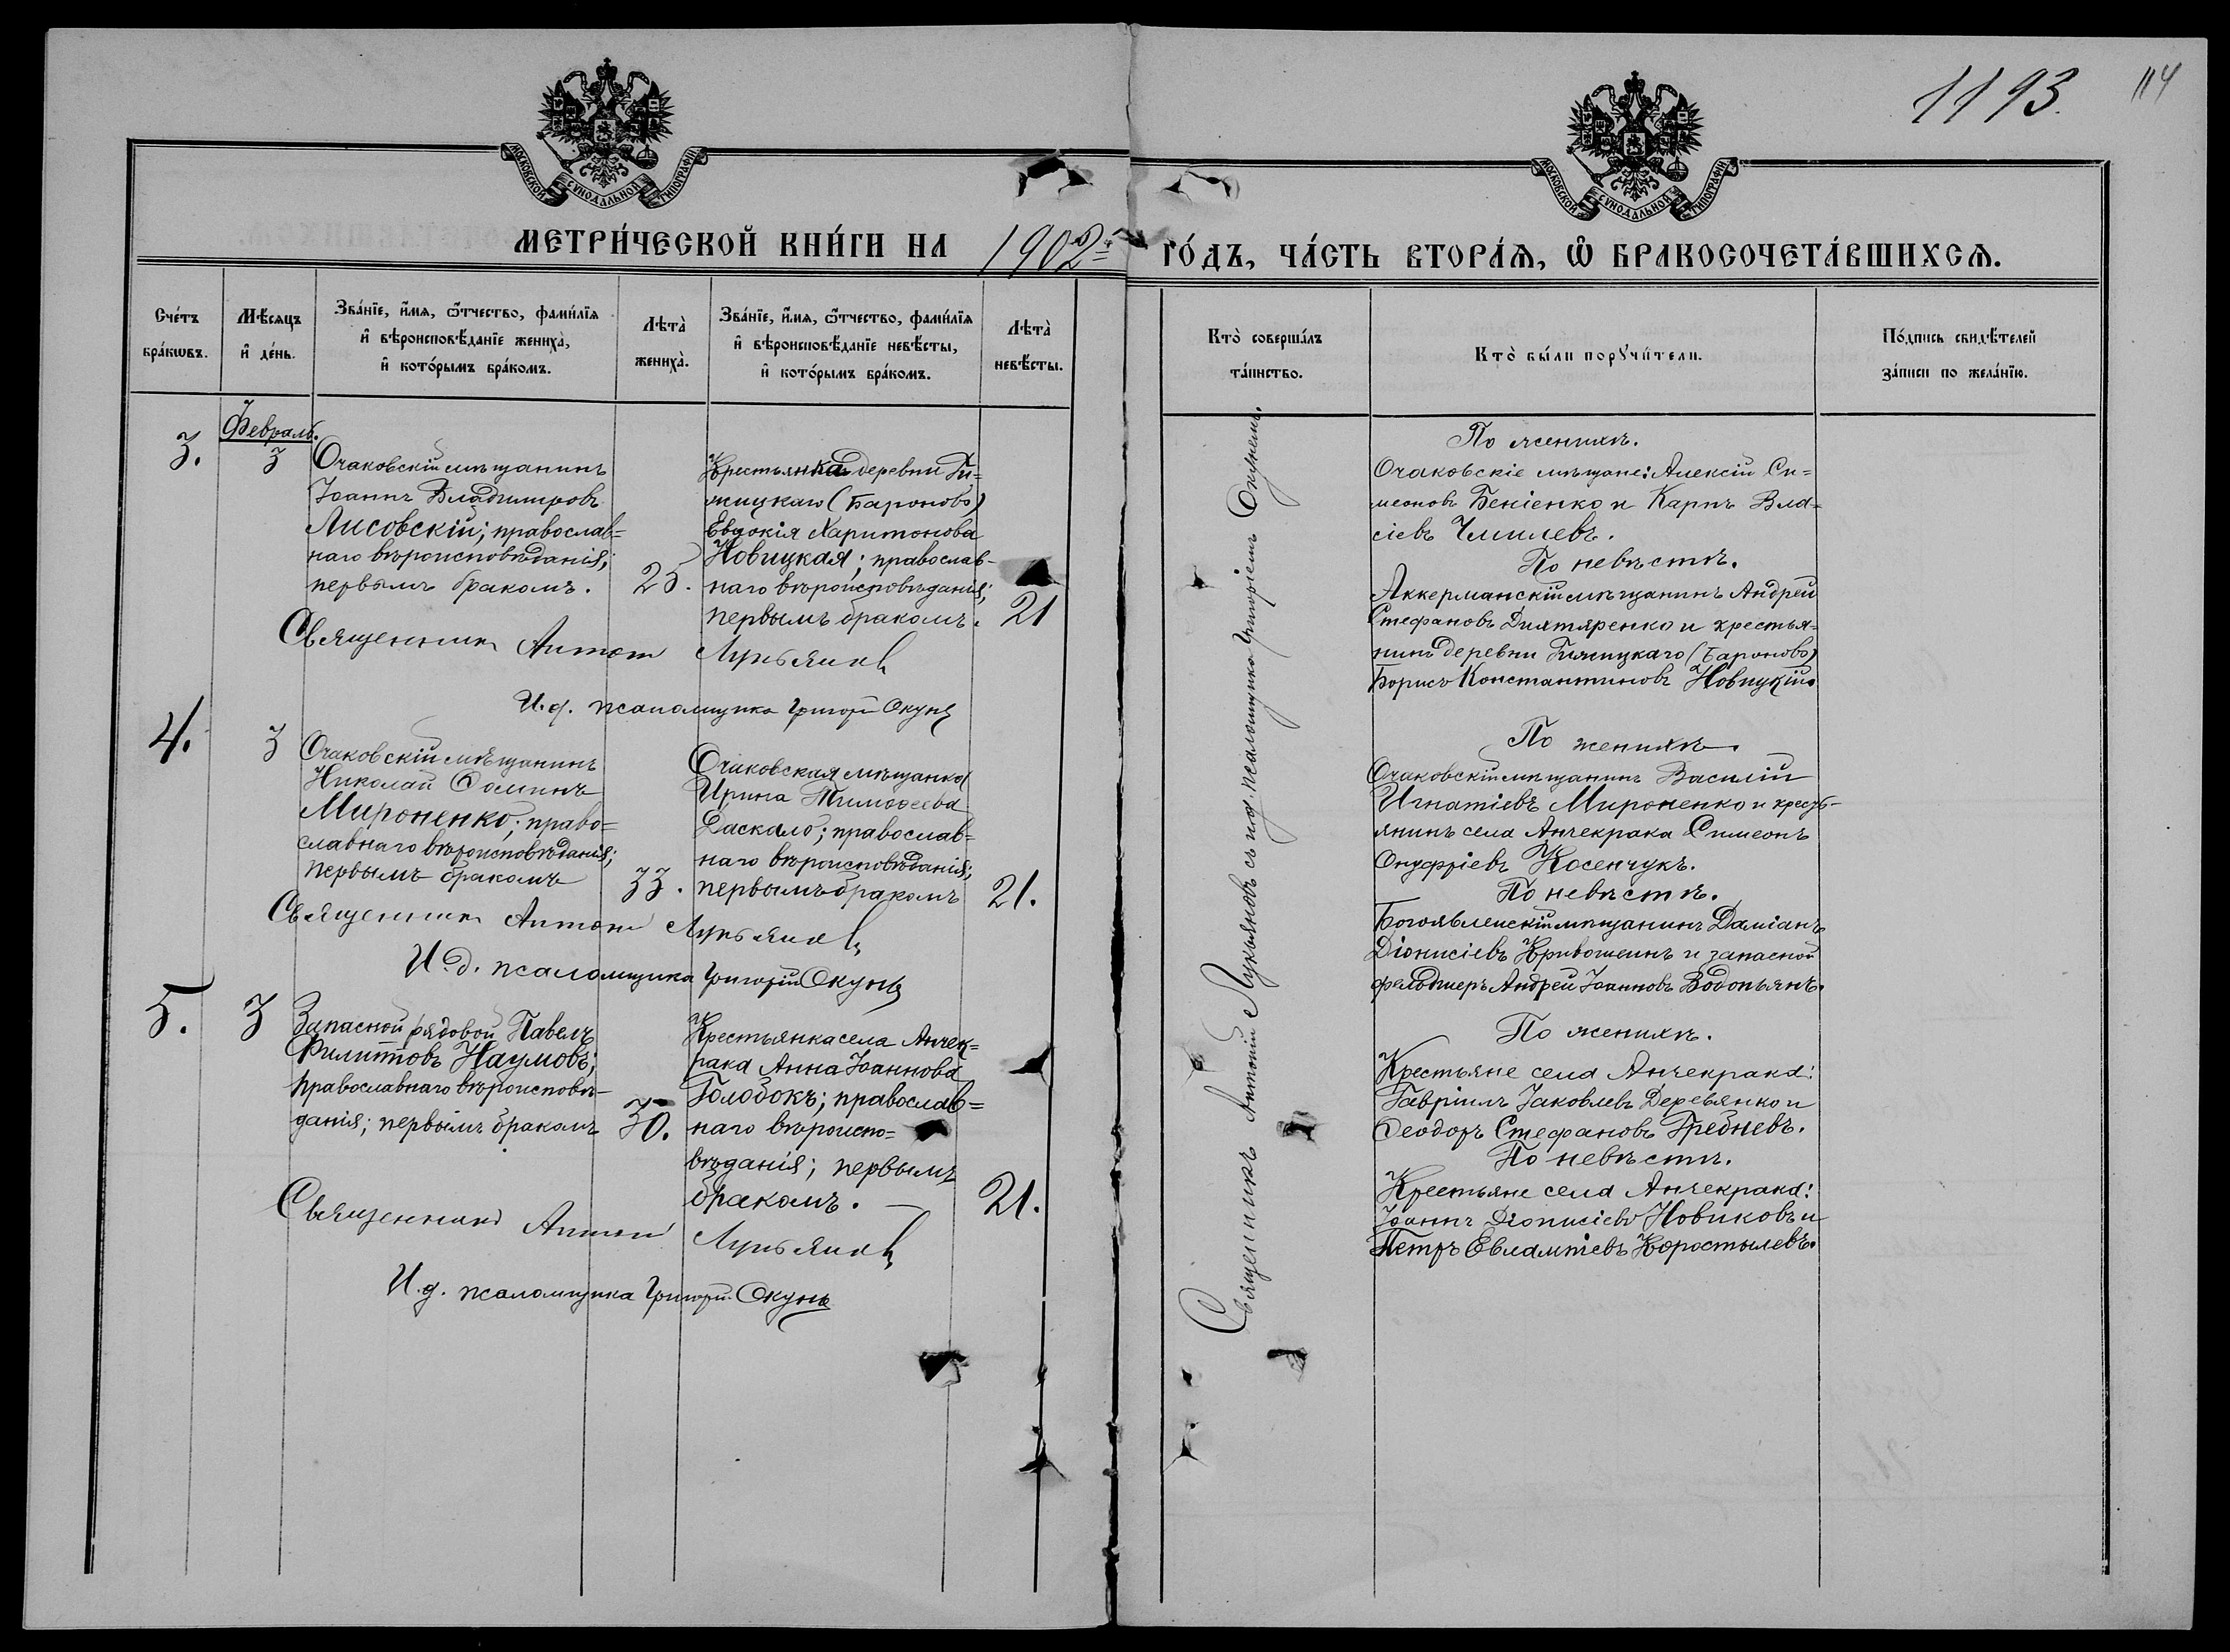 1193.
114
МОСКОВСКОЙ СѴНОДАЛЬНОЙ ТИПОГРАФІИ
МОСКОВСКОЙ СѴНОДАЛЬНОЙ ТИПОГРАФІИ
МЕТРИ́ЧЕСКОЙ КНИ́ГИ НА 1902й ГО́ДЪ, ЧА́СТЬ ВТОРА́Ѧ, Ѽ БРАКОСОЧЕТА́ВШИХСѦ.
Сче́тъ
бра́кѡвъ.
Мѣ́сяцъ
и҆ де́нь.
Зва́нїе, и҆́мѧ, ѻ҆́тчество, фами́лїѧ
и҆ вѣроисповѣ́данїе жениха̀,
и҆ кото́рымъ бра́комъ.
Лѣта̀
жениха̀.
Зва́нїе, и҆́мѧ, ѻ҆́тчество, фами́лїѧ
и҆ вѣроисповѣ́данїе невѣ́сты,
и҆ кото́рымъ бра́комъ.
Лѣта̀
невѣ́сты.
Кто̀ соверша́лъ
та́инство.
Кто̀ бы́ли порꙋчи́тели.
По́дпись свидѣ́телей
за́писи по жела́нїю.
Февраль.
3.
3
Очаковскій мѣщанинъ
Іоаннъ Владимировъ
Лисовскій; православ=
наго вѣроисповѣданія;
первымъ бракомъ.
25.
Крестьянка деревни Ги=
жицкаго (Бароново)
Евдокія Харитонова
Новицкая; православ-
наго вѣроисповѣданія;
первымъ бракомъ.
21
Священникъ Антоній Лукьяновъ
И.д. псаломщика Григорій Окунь
По женихѣ.
Очаковскіе мѣщане: Алексій Си=
меоновъ Бекіенко и Карпъ Вла=
сіевъ Чмилевъ.
По невѣстѣ.
Аккерманскій мѣщанинъ Андрей
Стефановъ Дихтяренко и крестья=
нинъ деревни Гижицкаго (Бароново)
Борисъ Константиновъ Новицкій.
4.
3
Очаковскій мѣщанинъ
Николай Ѳоминъ
Мироненко; право=
славнаго вѣроисповѣданія;
первымъ бракомъ
33.
Очаковская мѣщанка
Ирина Тимоѳеева
Даскало; православ=
наго вѣроисповѣданія;
первымъ бракомъ
21.
Священникъ Антоній Лукьяновъ
И.д. псаломщика Григорій Окунь
По женихѣ.
Очаковскій мѣщанинъ Василій
Игнатіевъ Мироненко и кресть-
янинъ села Анчекрака Симеонъ
Онуфріевъ Косенчукъ.
По невѣстѣ.
Богоявленскій мѣщанинъ Даміанъ
Діонисіевъ Кривошеинъ и запасной
фельдшеръ Андрей Іоанновъ Водопьянъ.
5.
3
Запасной рядовой Павелъ
Филипповъ Наумовъ;
православнаго вѣроисповѣ-
данія; первымъ бракомъ
30.
Крестьянка села Анчек=
рака Анна Іоаннова
Голобокъ; православ=
наго вѣроиспо=
вѣданія; первымъ
бракомъ.
21.
Священникъ Антоній Лукьяновъ
И.д. псаломщика Григорій Окунь
По женихѣ.
Крестьяне села Анчекрака:
Гавріилъ Іаковлевъ Деревянко и
Ѳеодоръ Стефановъ Гребневъ.
По невѣстѣ.
Крестьяне села Анчекрака:
Іоаннъ Діонисіевъ Новиковъ и
Петръ Евлампіевъ Коростылевъ.
Священникъ Антоній Лукьяновъ съ и.д. псаломщика Григоріемъ Окунемъ.